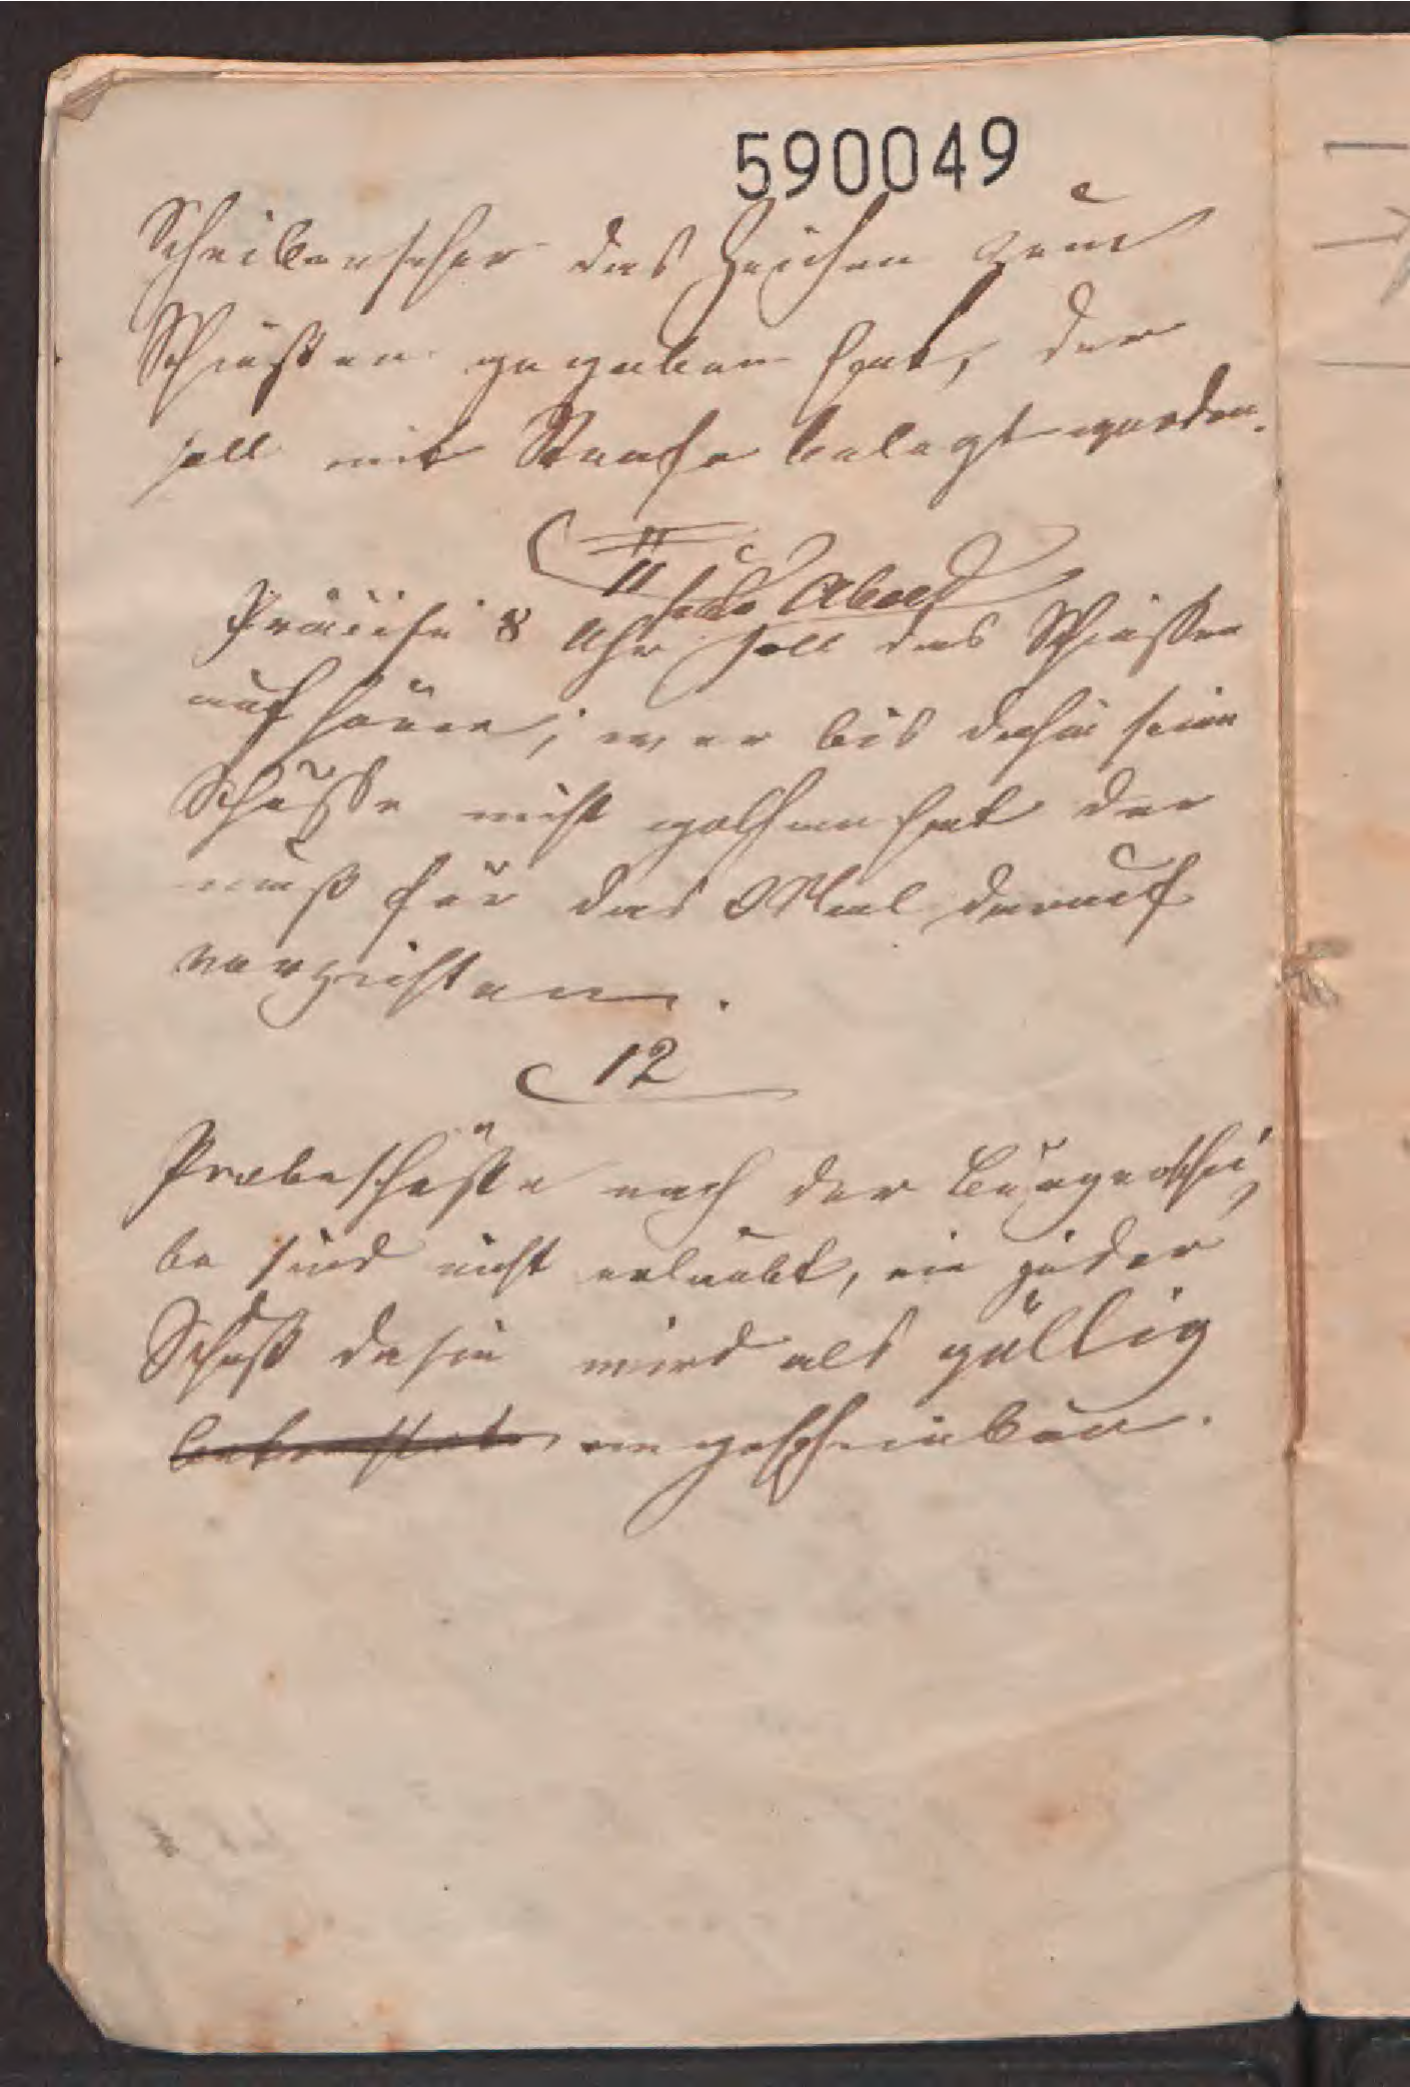 590049
Scheibenseher das Zeichen zum
Schießen gegeben hat, der
soll mit Strafe belegt werden.
11
jede Abend
Präcise 8 Uhr soll das Schießen
aufhören; wer bis dahin seine
Schüsse nicht gethan hat der
muß für das Mal darauf
verzichten.
12
Probeschüße nach der Bürgerschei
be sind nicht erlaubt, ein jeder
Schuß dahin wird als gültig
angeschrieben.